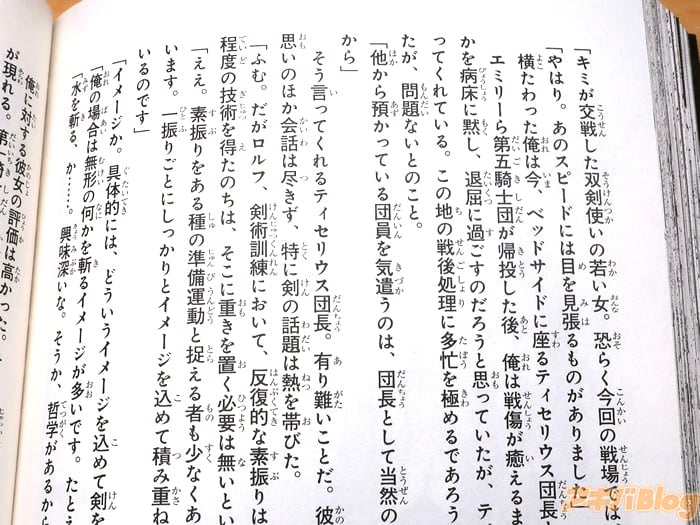 「キミが交戦した双剣使いの若い女。恐らく今回の戦場では
「やはり。あのスピードには目を見張るものがありました」
横たわった俺は今、ベッドサイドに座るティセリウス団長と
エミリーら第五騎士団が帰投した後、俺は戦傷が癒えるま
かを病床に黙し、退屈に過ごすのだろうと思っていたが、テ
ってくれている。この地の戦後処理に多忙を極めるであろう
たが、問題ないとのこと。
「他から預かっている団員を気遣うのは、団長として当然の
から」
そう言ってくれるティセリウス団長。有り難いことだ。彼
思いのほか会話は尽きず、特に剣の話題は熱を帯びた。
「ふむ。だがロルフ、剣術訓練において、反復的な素振りは
程度の技術を得たのちは、そこに重きを置く必要は無いとい
「ええ。素振りをある種の準備運動と捉える者も少なくあ
います。一振りごとにしっかりとイメージを込めて積み重ね
いるのです」
「イメージか。具体的には、どういうイメージを込めて剣を
「俺の場合は無形の何かを斬るイメージが多いです。たとえ
「水を斬る、か……。興味深いな。そうか、哲学があるから
俺に対する彼女の評価は高かった。
が現れる。第一騎士団
アキバBlog